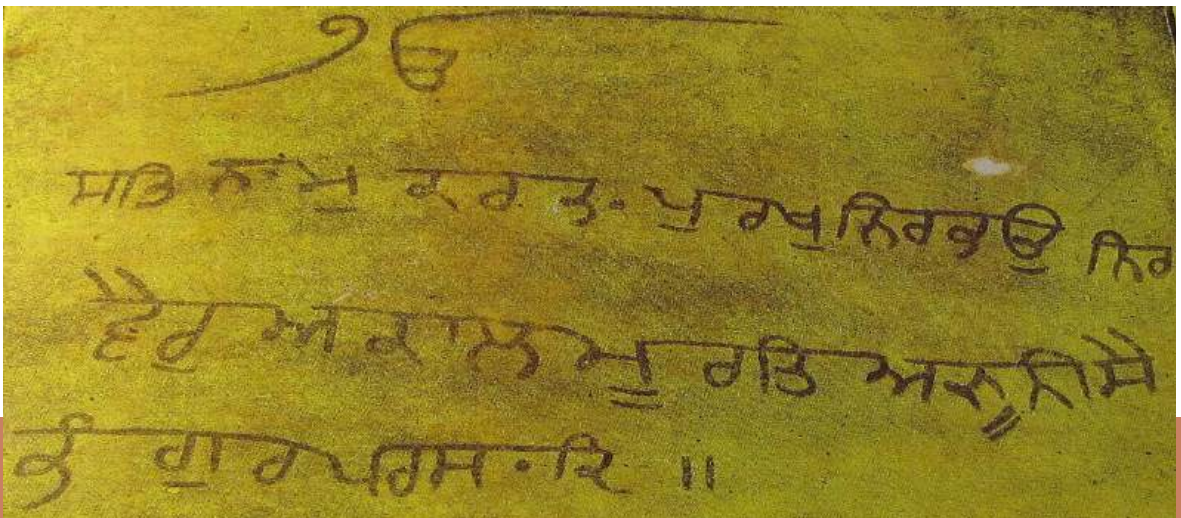 ੴ
ਸਤਿ ਨਾਮੁ ਕਰਤਾ ਪੁਰਖੁ ਨਿਰਭਉ ਨਿਰ
ਵੈਰੁ ਅਕਾਲ ਮੂਰਤਿ ਅਜੂਨੀ ਸੈ
ਭੰ ਗੁਰ ਪਰਸਾਦਿ ॥